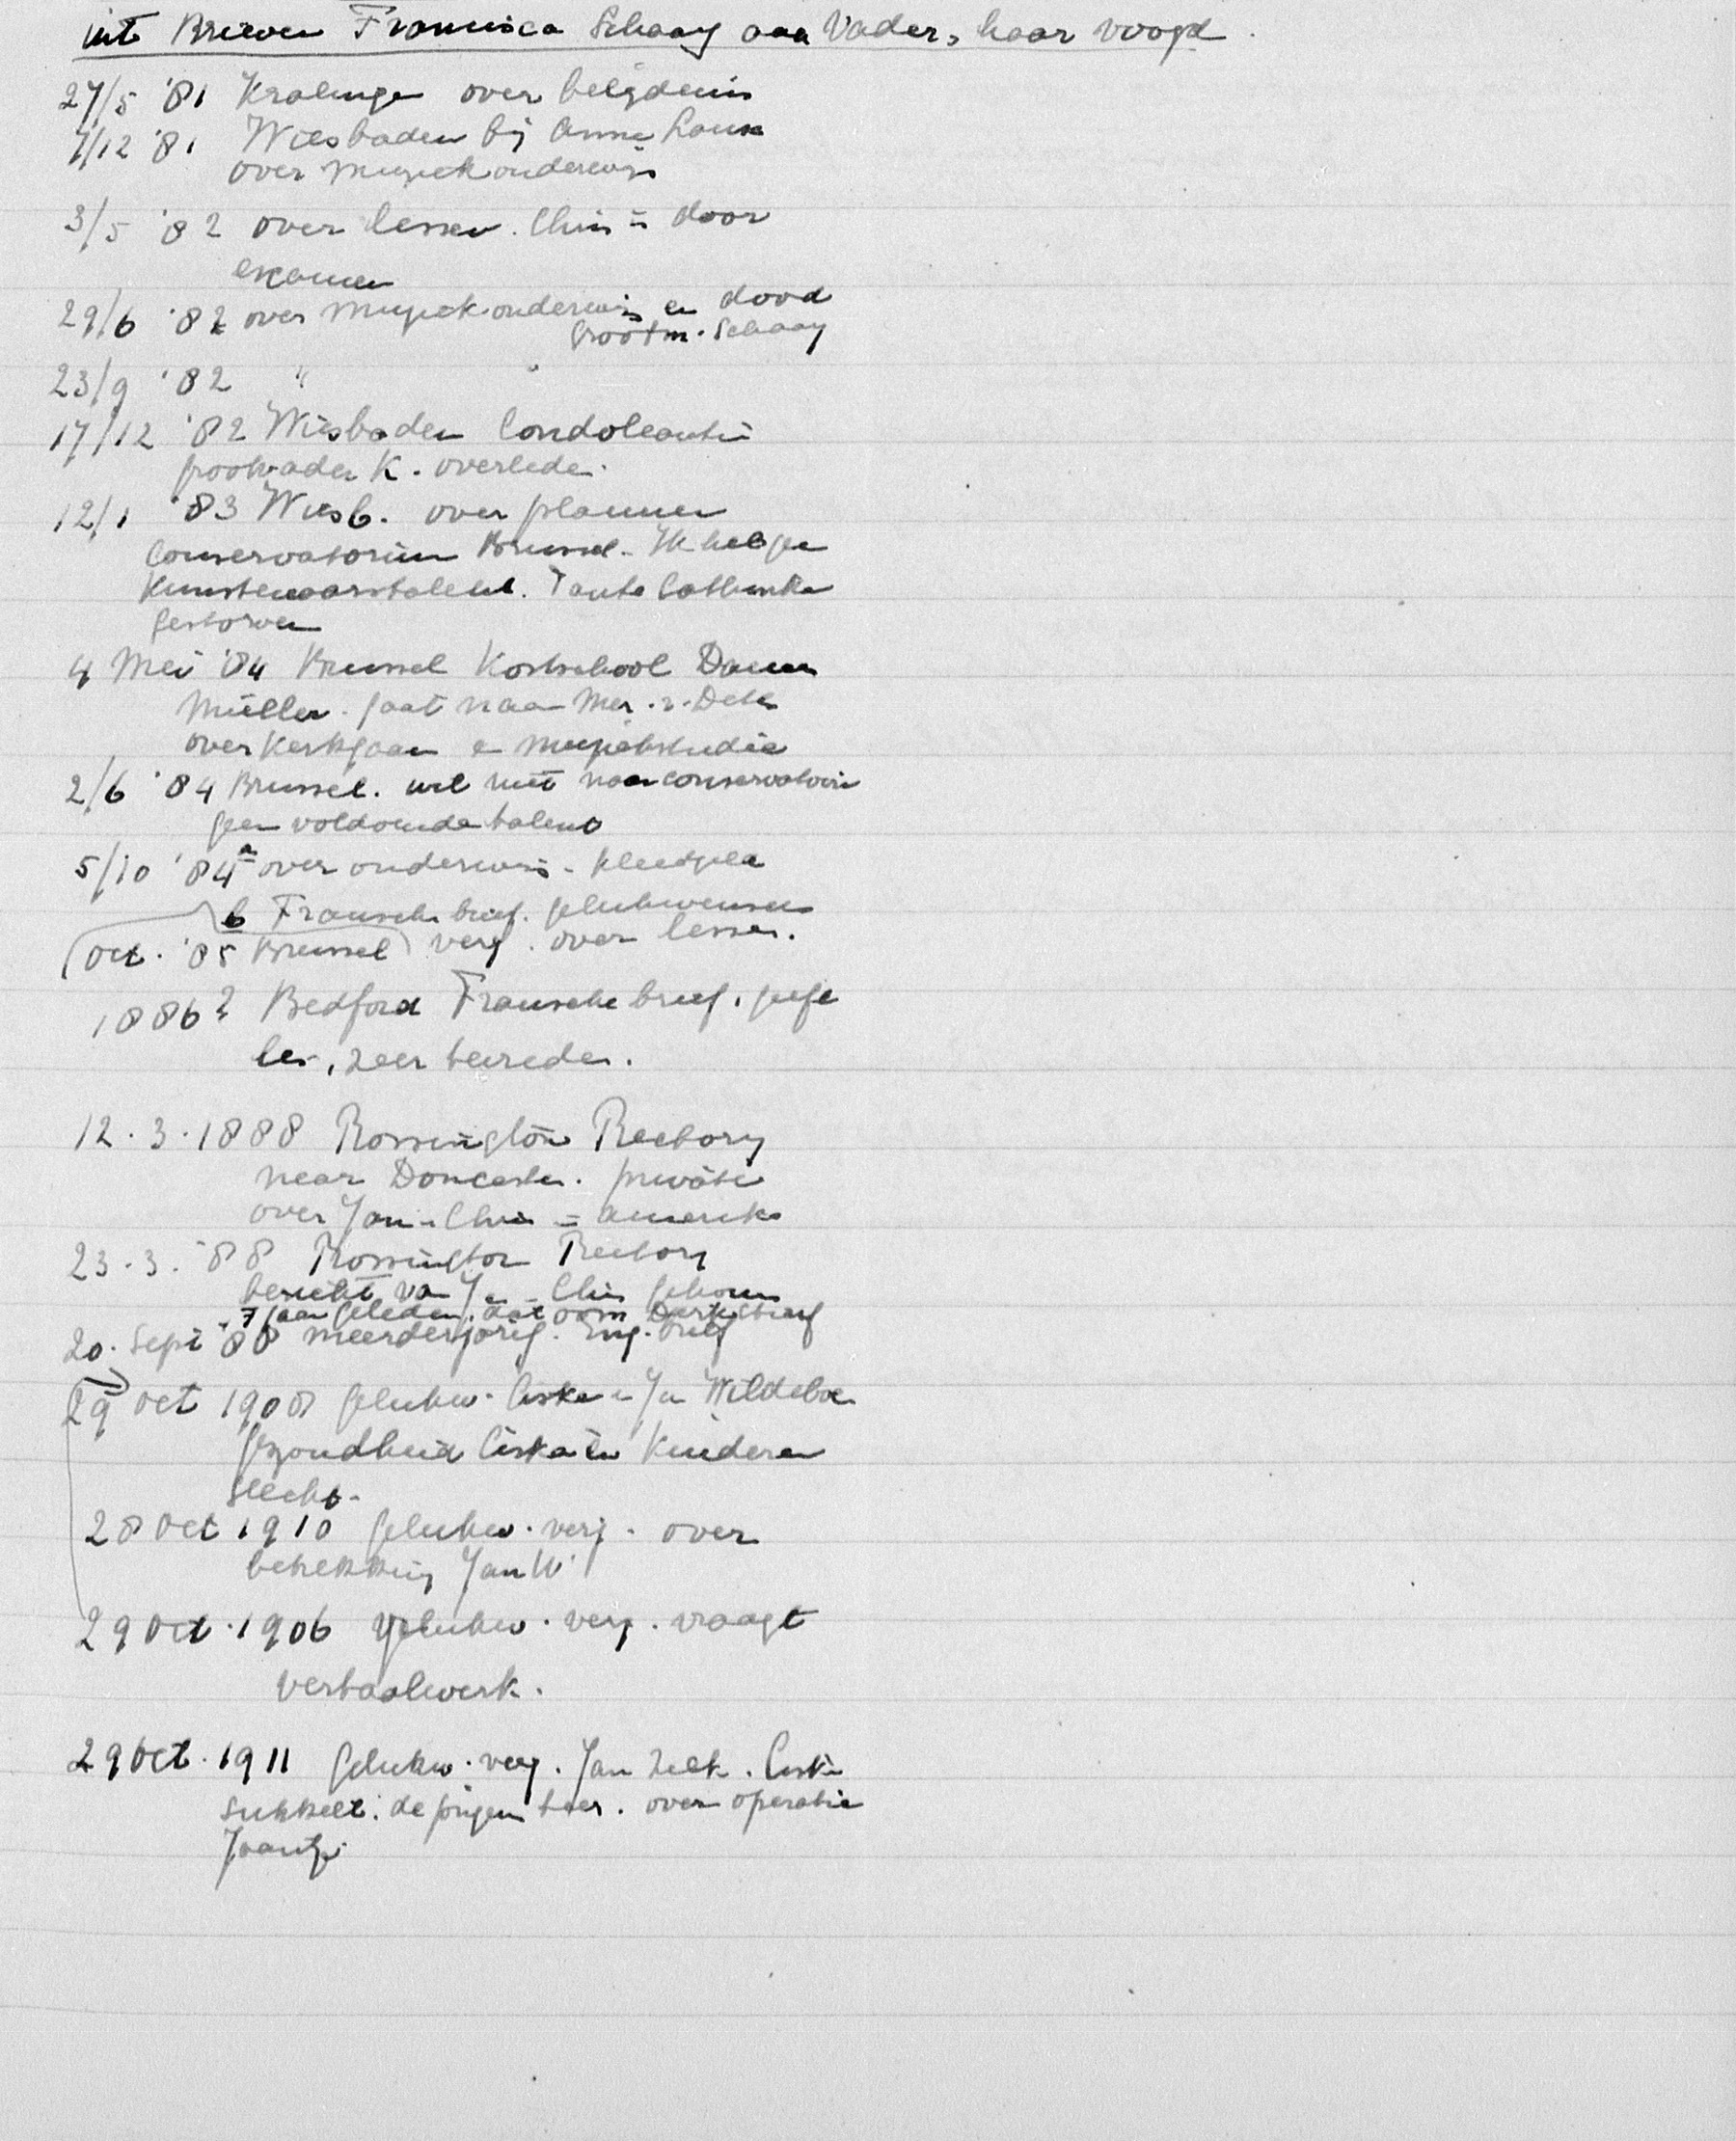 uit Brieven Francisca Schaay aan Vader, haar voogd.
27/5 '81 Kralingen over belijdenis
7/12 '81 Wiesbaden bij Anna
over muziekonderwijs
3/5 '82 over lessen. Chris is door
examen
29/6 '82 over muziekonderwijs en dood
Grootm. Schaay
23/9 '82 "
17/12 '82 Wiesbaden Condoleantie
grootvader K. overleden.
12/1 '83 Wiesb. over plannen
Conservatorium Brussel. Ik heb geen
Kunstenaarstalent. Tante Cathinka
gestorven
4 Mei '84 Brussel Kostschool Dames
Müller. gaat naar
over Kerkgaan en muziekstudie
2/6 '84 Brussel. wil niet naar conservatoire
geen voldoende talent
5/10 '84 a over onderwijs - kleedgeld
b Fransche brief. gelukwensen
(Oct. '85 Brussel) verj. over lessen.
1886? Bedford Fransche brief. geeft
les, zeer tevreden.
12.3.1888 Rossington Rectory
near Doncaster. private
over Jan en Chris in Amerika
23.3.'88 Rossington Rectory
bericht van Jan Chris gekomen
7 jaar geleden dat oom Dirk stierf
20. Sept '88 meerderjarig. Eng. brief
29 Oct 1908 gelukw. Ciska en Jan Wildeboer
gezondheid Ciska en Kinderen
slecht.
28 Oct 1910 gelukw. verj. over
betrekking Jan W.
29 Oct. 1906 gelukw. verj. vraagt
vertaalwerk.
29 Oct. 1911 Gelukw. verj. Jan ziek. Ciska
sukkelt. de jongen over operatie
Jaantje